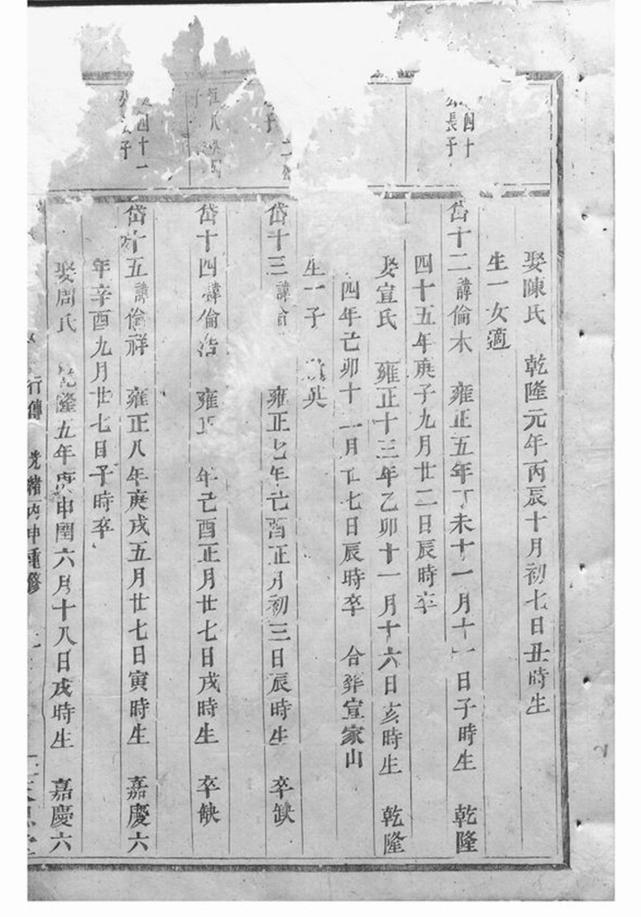 娶陳氏 乾隆元年丙辰十月初七日丑時生
生一女適
四十
長子
岱十二諱倫木 雍正五年丁未十一月十一日子時生 乾隆
四十五年庚子九月廿二日辰時卒
娶宣氏 雍正十三年乙卯十一月十六日亥時生 乾隆
四年己卯十一月廿七日辰時卒 合葬宣家山
生一子 英
岱十三諱 雍正七年己酉正月初三日辰時生 卒缺
岱十四諱倫浩 雍正 年己酉正月廿七日戌時生 卒缺
四十一
子
岱十五諱倫祥 雍正八年庚戌五月廿七日寅時生 嘉慶六
年辛酉九月廿七日子時卒
娶周氏 乾隆五年庚申閏六月十八日戌時生 嘉慶六
行傳 光緒丙申重修